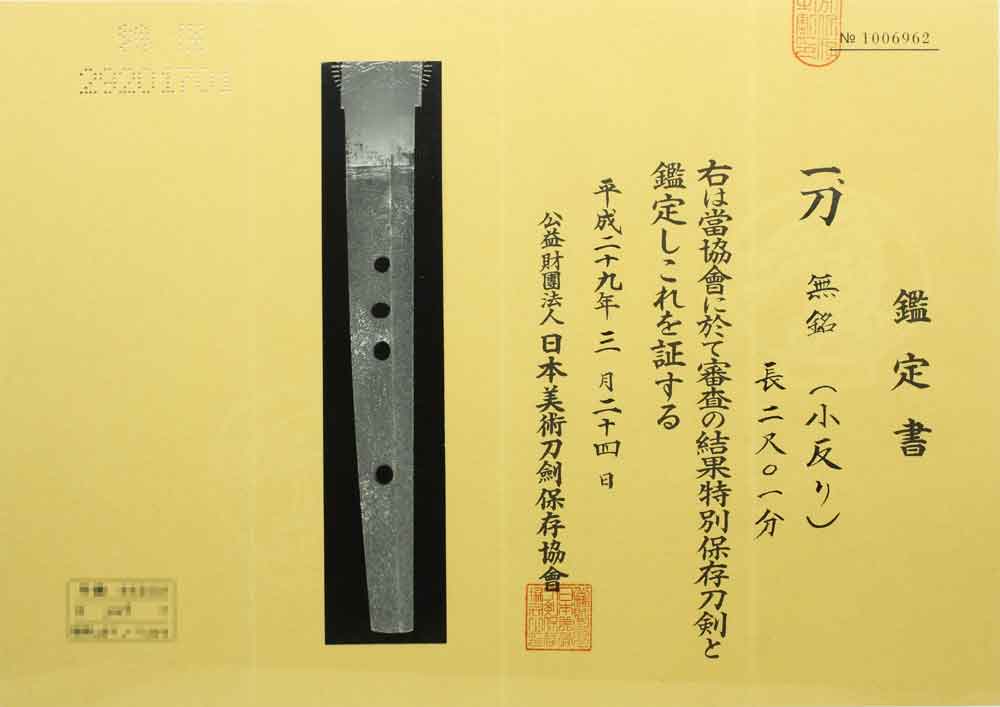 № 1006962
鑑定書
一、刀 無銘 (小反り)
長二尺〇一分
右は當協會に於て審査の結果特別保存刀剣と
鑑定しこれを証する
平成二十九年三月二十四日
公益財團法人日本美術刀劍保存協會